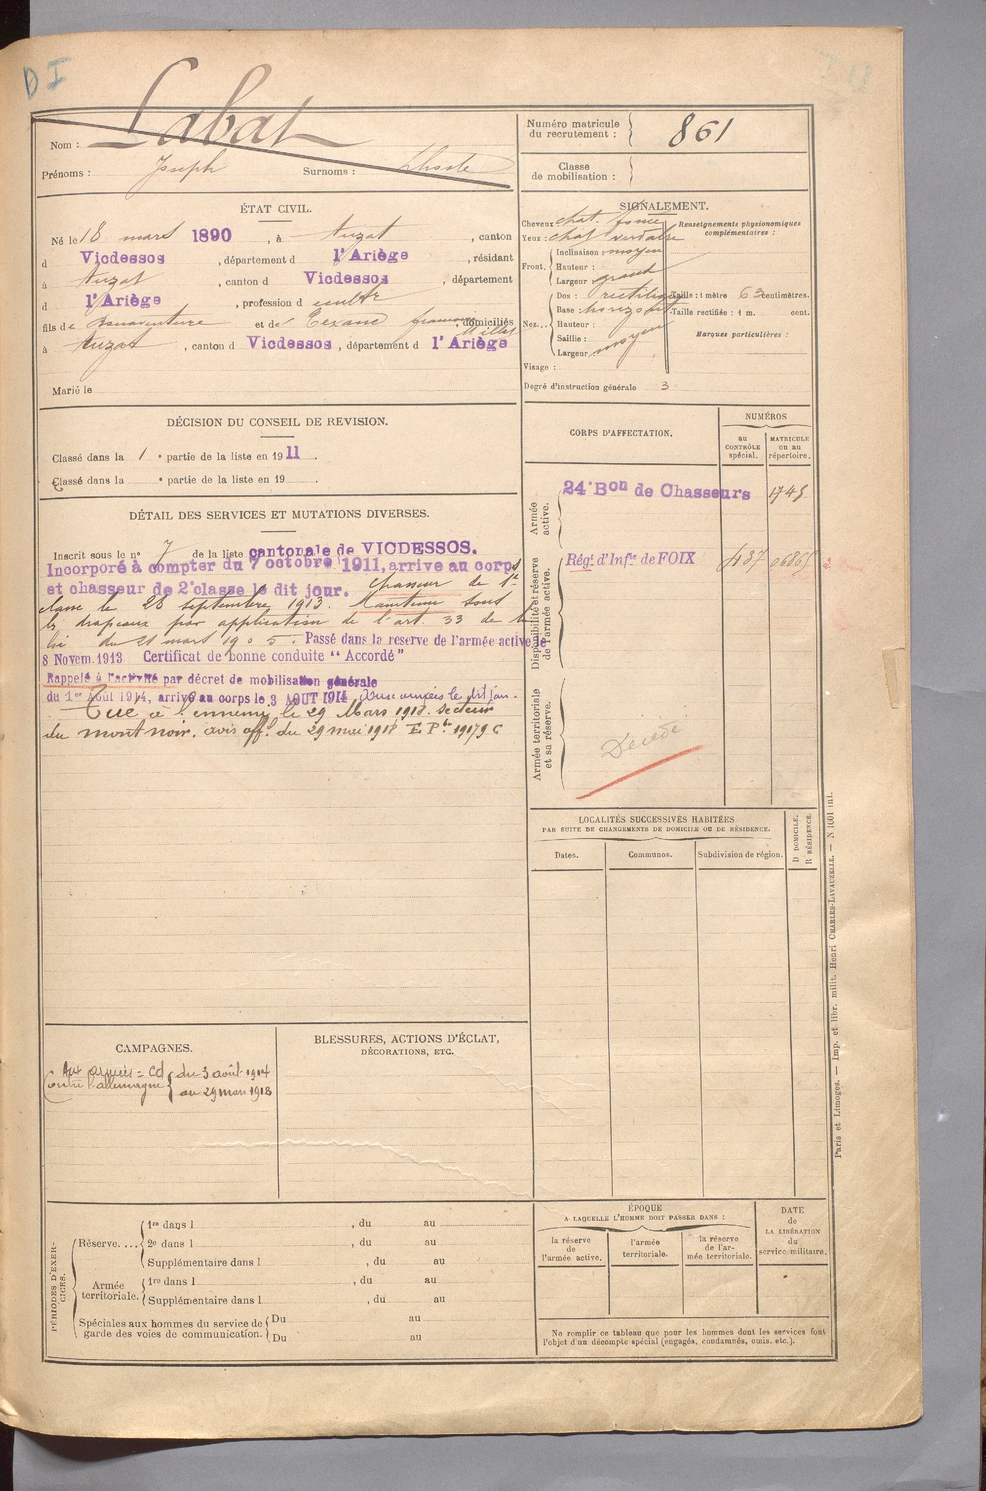 D I
Nom : Labat
Prénoms : Joseph Surnoms :
Numéro matricule du recrutement : 861
Classe de mobilisation :
ÉTAT CIVIL.
Né le 18 mars 1890, à Auzat, canton
d Vicdessos, département d l'Ariège, résidant
à Auzat, canton d Vicdessos, département
d l'Ariège, profession d
fils de Bonaventure et de domiciliés
à Auzat, canton d Vicdessos, département d l'Ariège
Marié le
SIGNALEMENT.
Cheveux chat. foncé
Yeux : chat verdatre
Front. Inclinaison moyen
Hauteur :
Largeur grand
Nez... Dos : rectiligne
Base horizontale
Hauteur :
Saillie :
Largeur moyen
Visage :
Renseignements physionomiques complémentaires :
Taille : 1 mètre 63 centimètres.
Taille rectifiée : 1 m. cent.
Marques particulières :
Degré d'instruction générale 3
DÉCISION DU CONSEIL DE REVISION.
Classé dans la 1 e partie de la liste en 1911.
Classé dans la e partie de la liste en 19
DÉTAIL DES SERVICES ET MUTATIONS DIVERSES.
Inscrit sous le n° 7 de la liste cantonale de VICDESSOS.
Incorporé à compter du 7 octobre 1911, arrive au corps
et chasseur de 2e classe le dit jour. Chasseur de 1e
classe le 28 septembre 1913. Maintenu sous
les drapeaux par application de l'art. 33 de la
loi du 21 mars 1905. Passé dans la reserve de l'armée active le
8 Novem. 1913 Certificat de bonne conduite "Accordé"
Rappelé à l'activité par décret de mobilisation générale
du 1er Août 1914, arrivé au corps le 3 AOUT 1914 Aux armées le dit jour.
Tué à l'ennemi le 29 Mars 1918. Secteur
du mont noir. avis off. du 29 mai 1918 E. P.
CORPS D'AFFECTATION.
NUMÉROS
au CONTRÔLE spécial.
MATRICULE ou au répertoire.
Armée active.
24e Bon de Chasseurs 1745
Disponibilité et réserve de l'armée active.
Régt d'Infie de FOIX 437 06865
Armée territoriale et sa réserve.
Décédé
LOCALITÉS SUCCESSIVES HABITÉES
PAR SUITE DE CHANGEMENTS DE DOMICILE OU DE RÉSIDENCE.
Dates. Communes. Subdivision de région.
D DOMICILE. R RÉSIDENCE.
CAMPAGNES.
Aux armées = CD
Contre l'allemagne
du 3 août 1914
au 29 mars 1918
BLESSURES, ACTIONS D'ÉCLAT,
DÉCORATIONS, ETC.
PÉRIODES D'EXERCICES.
Réserve.... 1re dans l , du au
2e dans l , du au
Supplémentaire dans l , du au
Armée territoriale. 1re dans l , du au
Supplémentaire dans l , du au
Spéciales aux hommes du service de garde des voies de communication. Du au
Du au
ÉPOQUE
A LAQUELLE L'HOMME DOIT PASSER DANS :
la réserve de l'armée active.
l'armée territoriale.
la réserve de l'armée territoriale.
DATE de LA LIBÉRATION du service militaire.
Ne remplir ce tableau que pour les hommes dont les services font
l'objet d'un décompte spécial (engagés, condamnés, omis, etc.).
Paris et Limoges. — Imp. et libr. milit. Henri CHARLES-LAVAUZELLE. — N 1001 ini.